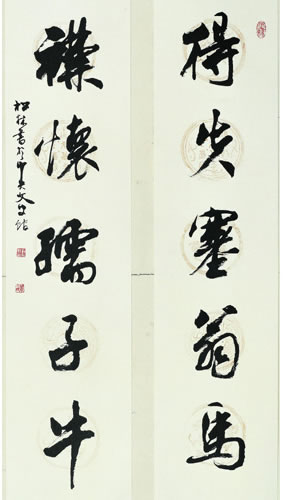 得失塞翁馬
襟懷孺子牛
松林書於中央文史館